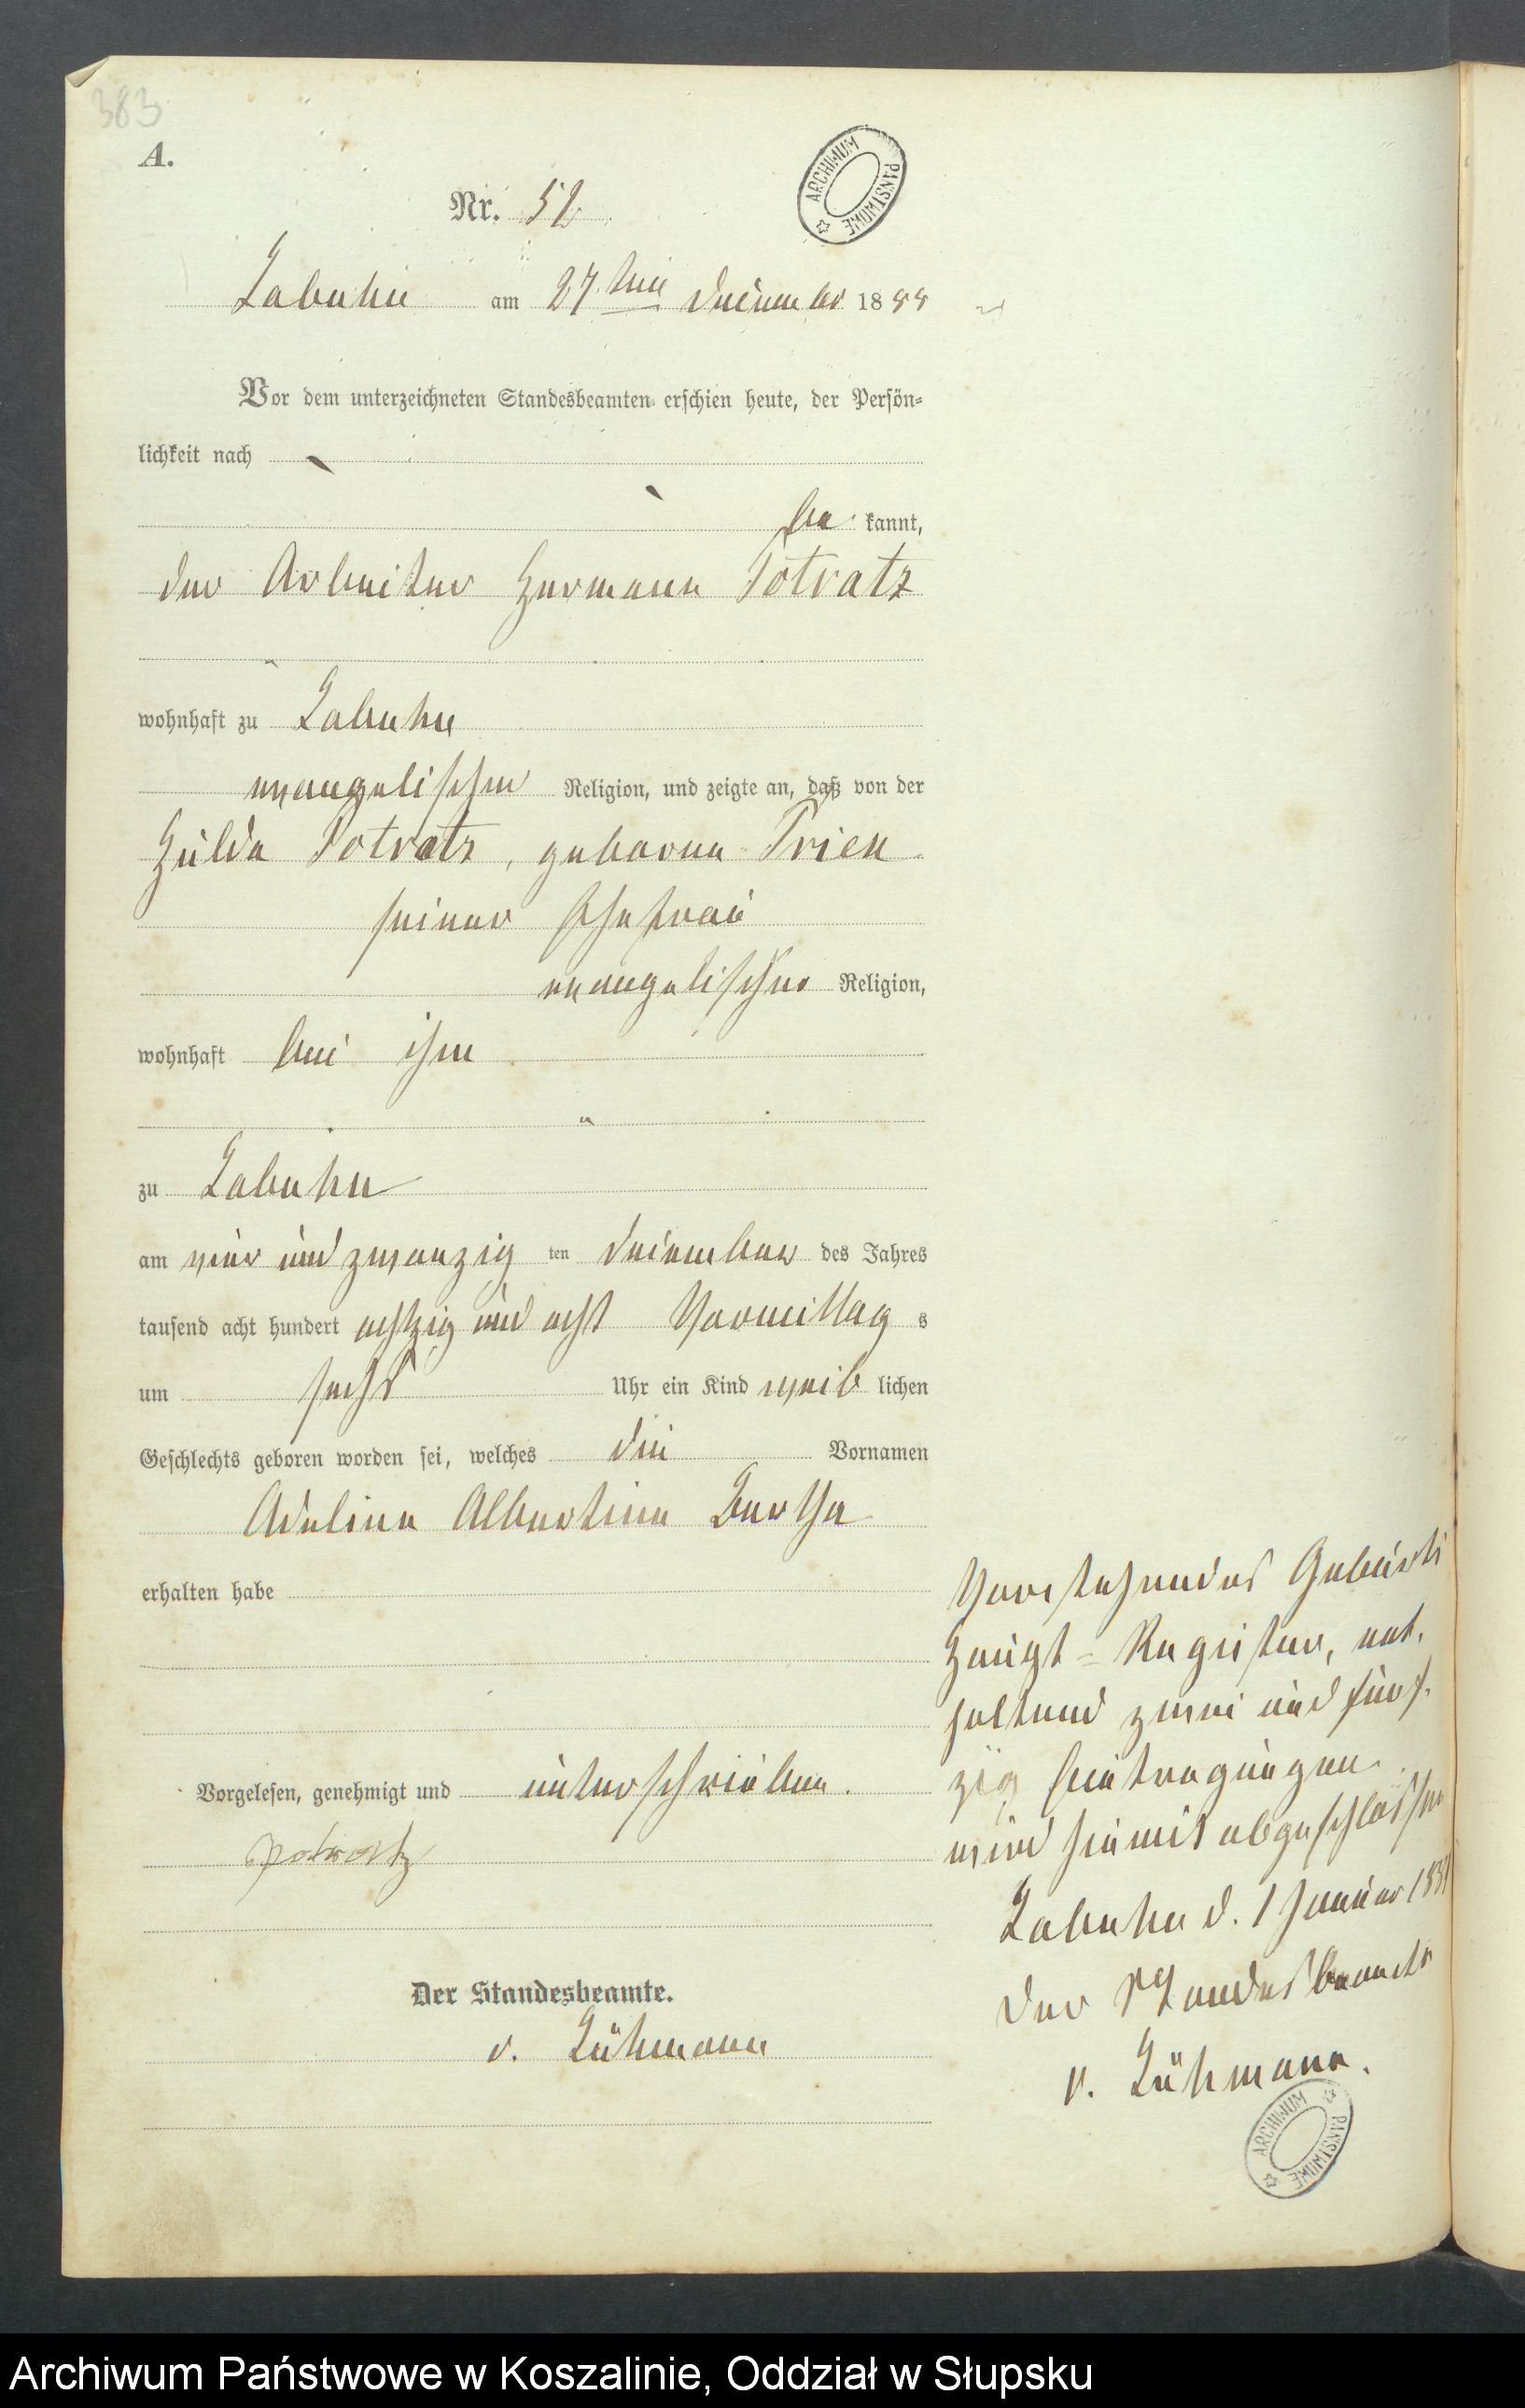 383
A.
ARCHIWUM PAŃSTWOWE
Nr. 52
Labuhn am 27ten December 1888
Vor dem unterzeichneten Standesbeamten erschien heute, der Persön-
lichkeit nach
be kannt,
der Arbeiter Hermann Potratz
wohnhaft zu Labuhn
evangelischer Religion, und zeigte an, daß von der
Hulda Potratz, geborene Prien
seiner Ehefrau
evangelischer Religion,
wohnhaft bei ihm
zu Labuhn
am vier und zwanzig ten December des Jahres
tausend acht hundert achtzig und acht Vormittag s
um sechs Uhr ein Kind weib lichen
Geschlechts geboren worden sei, welches die Vornamen
Adeline Albertine Bertha
erhalten habe
Vorgelesen, genehmigt und unterschrieben.
Potratz
Der Standesbeamte.
v. Lühmann
Vorstehendes Geburts
Haupt-Register, ent-
haltend zwei und fünf-
zig Eintragungen
wird hiermit abgeschlossen
Labuhn d. 1 Januar
Der Standesbeamte
v. Lühmann.
ARCHIWUM PAŃSTWOWE
Archiwum Państwowe w Koszalinie, Oddział w Słupsku